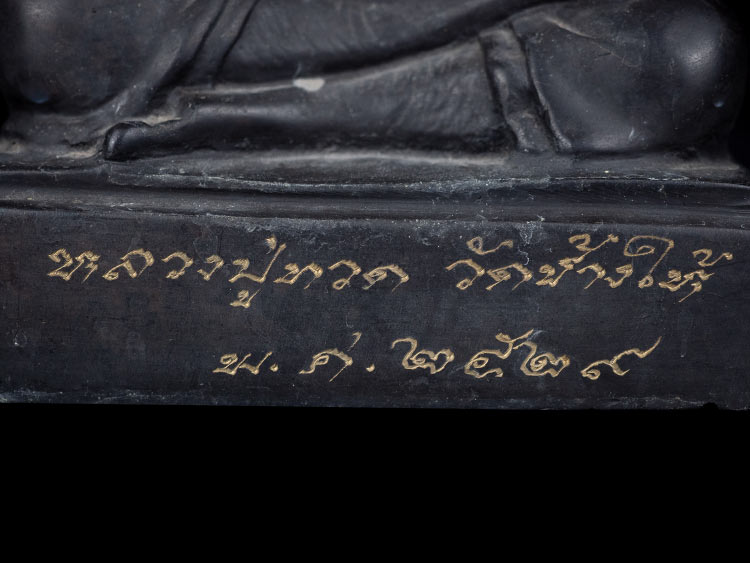 หลวงปู่ทวด วัดช้างให้
พ.ศ. ๒๕๒๙